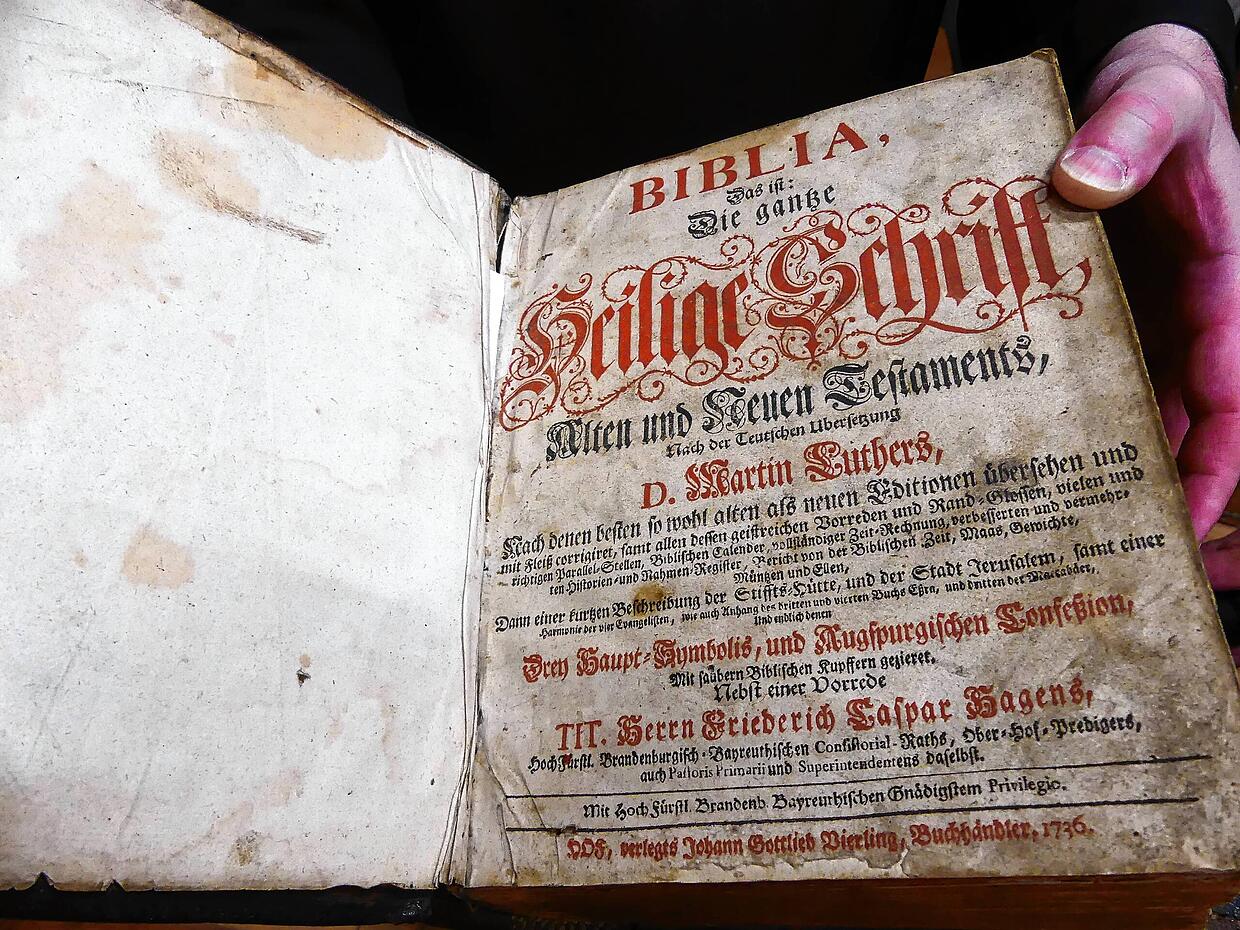 BIBLIA,
Das ist:
Die gantze
Heilige Schrift
Alten und Neuen Testaments,
Nach der Teutschen Ubersetzung
D. Martin Luthers,
Nach denen besten so wohl alten als neuen Editionen übersehen und
mit Fleiß corrigiret, samt allen dessen geistreichen Vorreden und Rand-Glossen, vielen und
richtigen Parallel-Stellen, Biblischen Calender, vollständiger Zeit-Rechnung, verbesserten und vermehr-
ten Historien- und Nahmen-Register, Bericht von der Biblischen Zeit, Maas, Gewichte,
Müntzen und Ellen,
Dann einer kurtzen Beschreibung der Stiffts-Hütte, und der Stadt Jerusalem, samt einer
Harmonie der vier Evangelisten, wie auch Anhang des dritten und vierten Buchs Esra, und dritten der Maccabäer,
Und endlich denen
Drey Haupt-Symbolis, und Augspurgischen Confeßion,
Mit saubern Biblischen Kupffern gezieret.
Nebst einer Vorrede
TIT. Herrn Friederich Caspar Hagens,
HochFürstl. Brandenburgisch-Bayreuthischen Consistorial-Raths, Ober-Hof-Predigers,
auch Pastoris Primarii und Superintendentens daselbst.
Mit HochFürstl. Brandenb. Bayreuthischen Gnädigstem Privilegio.
HOF, verlegts Johann Gottlieb Vierling, Buchhändler, 1736.